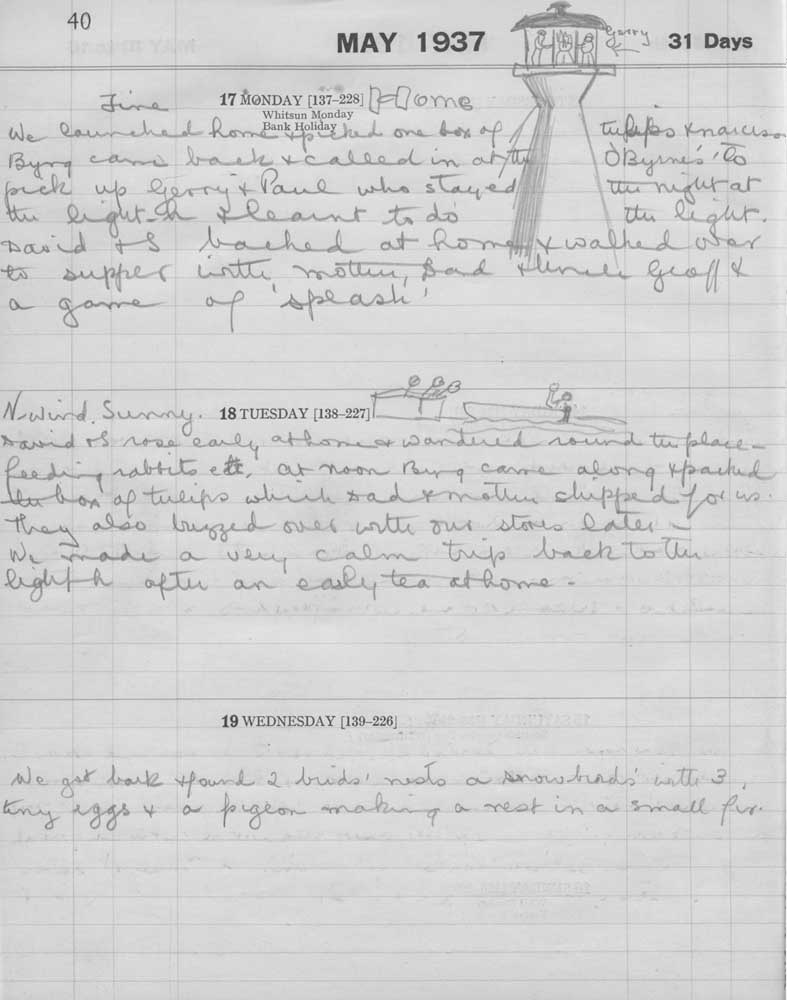 40
MAY 1937
Gerry
31 Days
Fine 17 MONDAY [137–228] Home
Whitsun Monday
Bank Holiday
We launched home & picked one box of tulips & narcissa
Byng came back & called in at the O'Byrnes' to
pick up Gerry & Paul who stayed the night at
the light-h & learnt to do the light.
David & I bached at home & walked over
to supper with mother, Dad & Uncle Geoff &
a game of 'splash'
N. Wind. Sunny. 18 TUESDAY [138–227]
David & I rose early at home & wandered round the place –
feeding rabbits etc, at noon Byng came along & packed
the box of tulips which Dad & mother shipped for us.
They also buzzed over with our stores later –
We made a very calm trip back to the
light h after an early tea at home –
19 WEDNESDAY [139–226]
We got back & found 2 birds' nests a snowbirds' with 3
tiny eggs & a pigeon making a nest in a small fir.